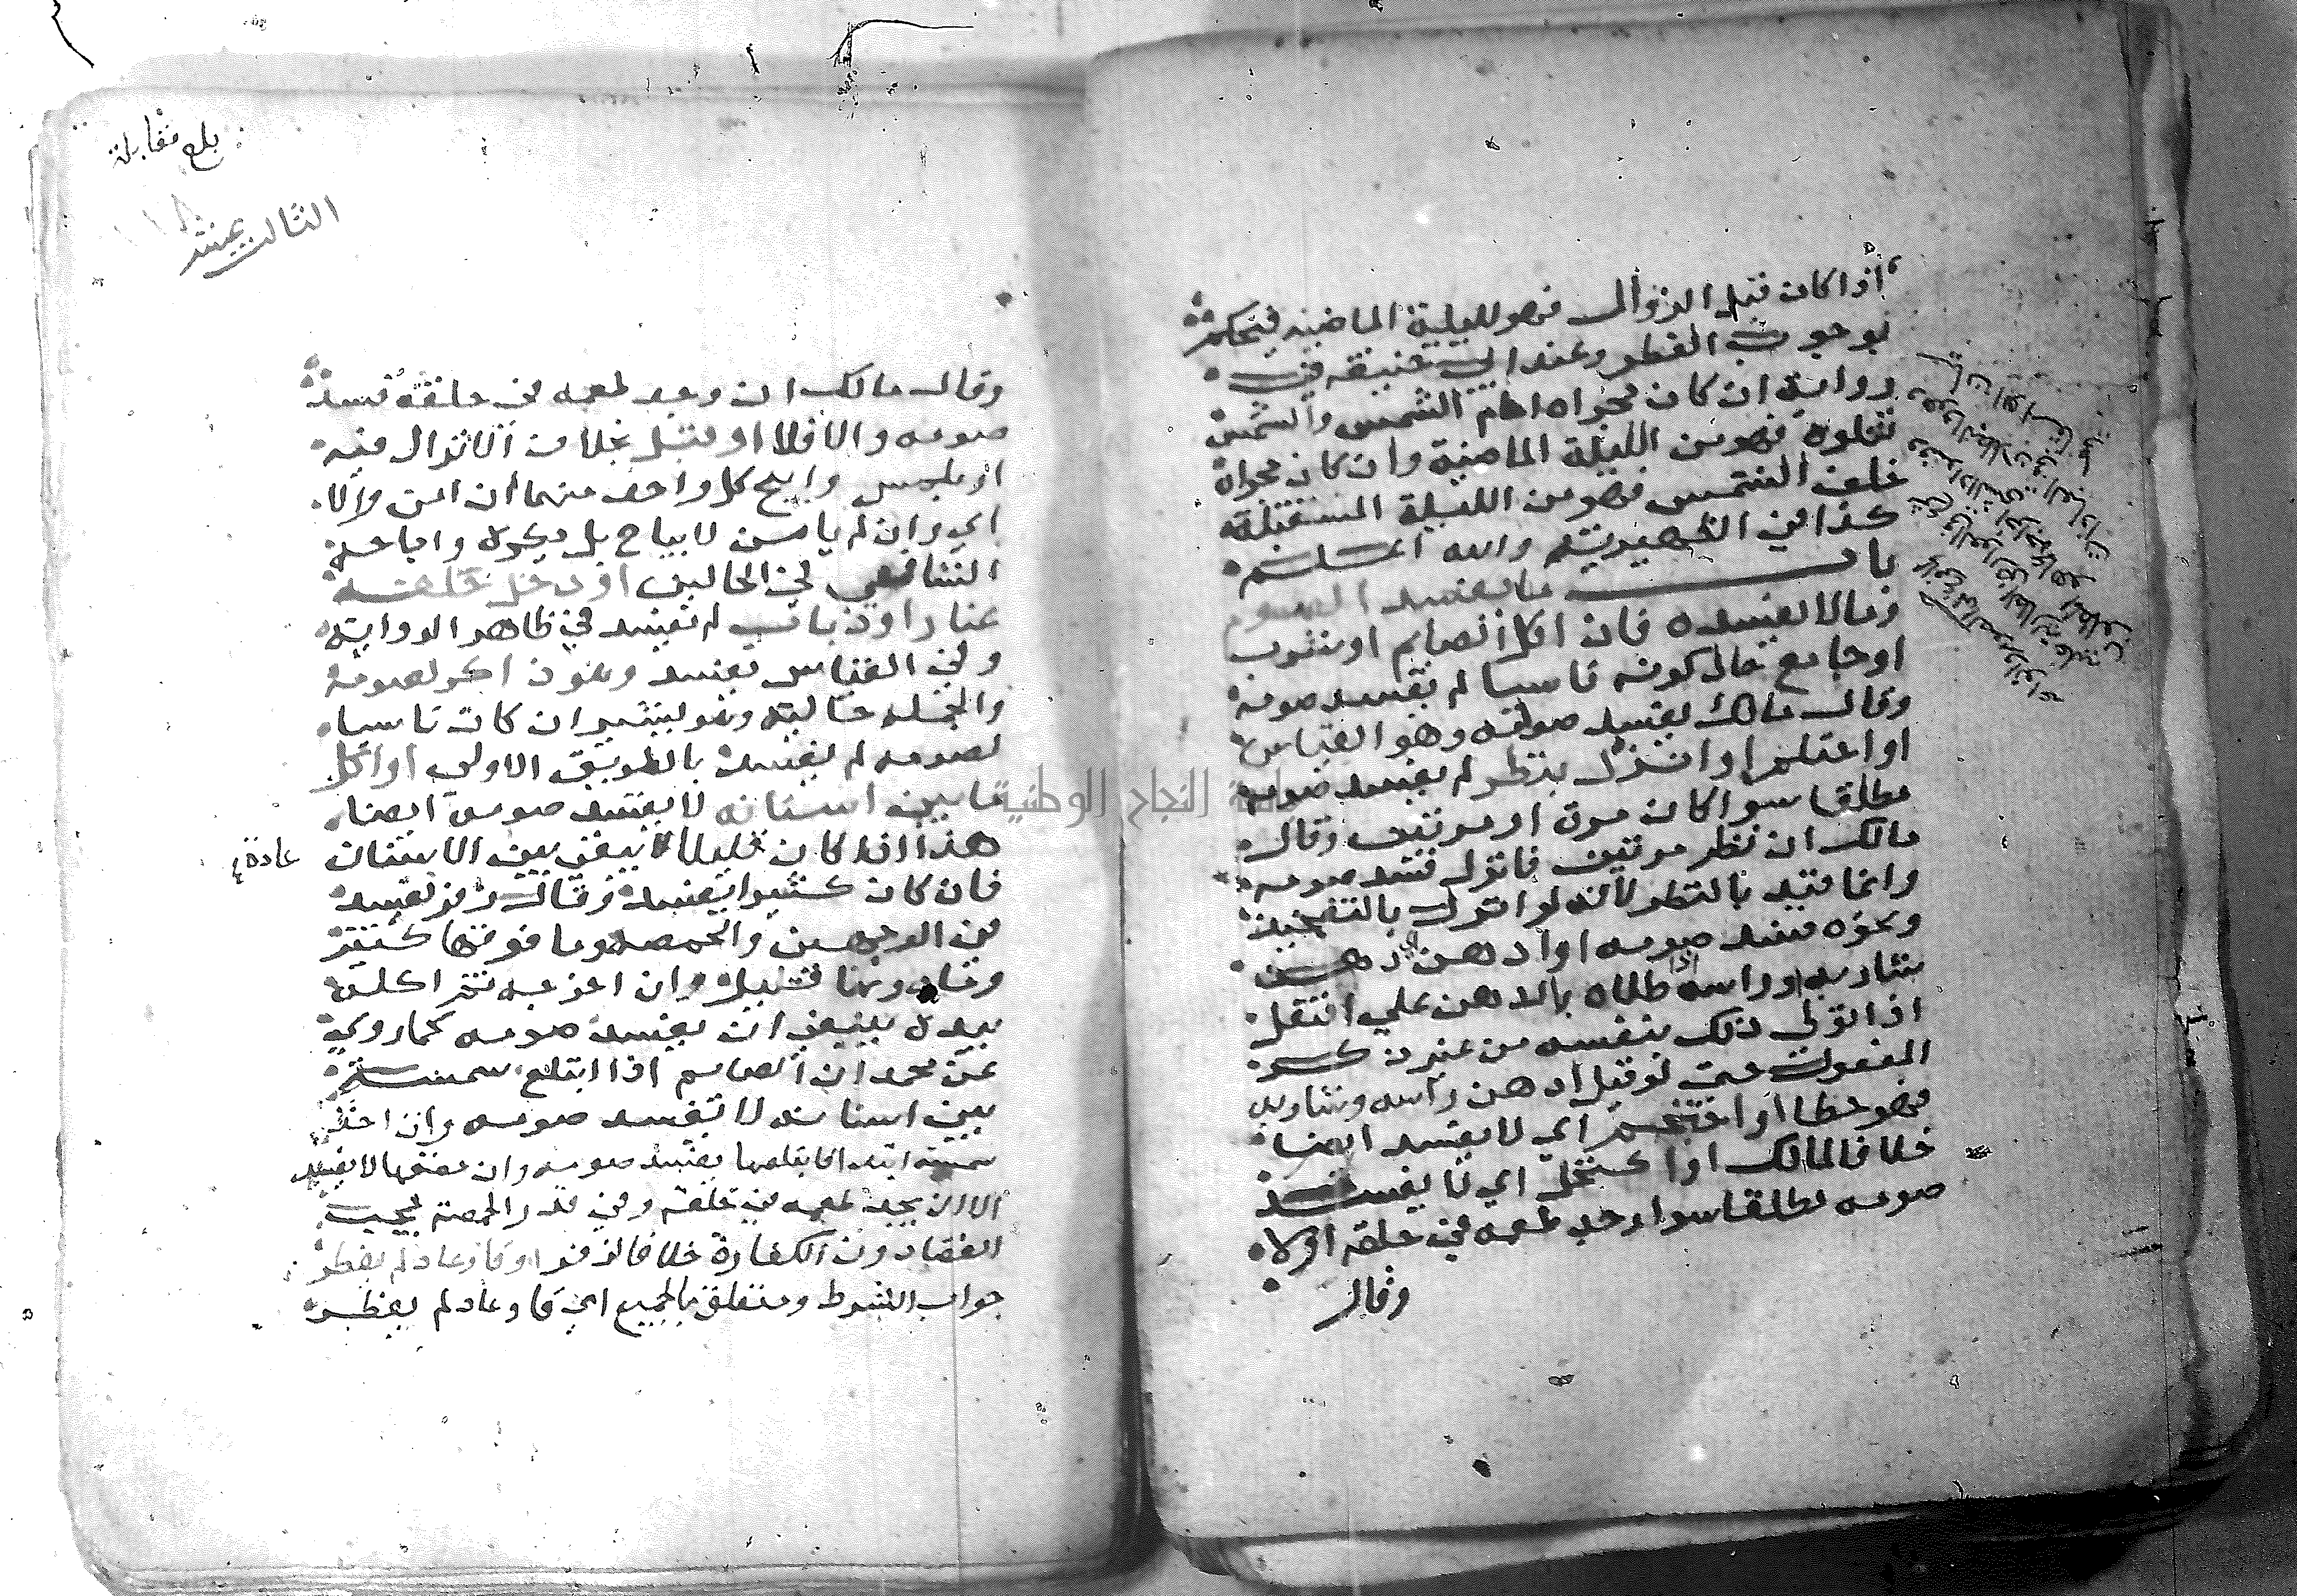 اذا كان قبل الزوال فهو لليلية الماضيه فيحكم
بوجوب الفطر وعند ابي حنيفه في
رواية ان كان مجراه امام الشمس والشمس
تتلوه فهو من الليلة الماضية وان كان مجراه
خلف الشمس فهو من الليلة المستقبلة
كذا في الظهيرية والله اعلم
باب ما يفسد الصوم
وما لا يفسده فان اكل الصايم او شرب
او جامع حال كونه ناسيا لم يفسد صومه
وقال مالك يفسد صومه وهو القياس
او احتلم او انزل بنظر لم يفسد صومه
مطلقا سوا كان مرة او مرتين وقال
مالك ان نظر مرتين فانزل فسد صومه
وانما قيد بالنظر لانه لو انزل بالتفخيذ
ونحوه فسد صومه او ادهن اي دهن
شاربه وراسه اذا طلاه بالدهن علي افتعل
اذا تولى ذلك بنفسه من غير ذكر
المفعول حتي لو قيل ادهن راسه وشاربه
فهو خطا او احتجم اي لا يفسد ايضا
خلافا لمالك او اكتحل اي لا يفسد
صومه مطلقا سوا وجد طعمه في حلقه او لا
وقال
بلغ مقابلة
الثالث عشر
وقال مالك ان وجد طعمه في حلقه فسد
صومه والا فلا او قبل بخلاف الانزال فيه
او بلمس وابيح كل واحد منهما ان امن والا
اي وان لم يامن لا يباح بل يكره واباحه
الشافعي في الحالين او دخل حلقه
غبار او ذباب لم يفسد في ظاهر الرواية
وفي القياس يفسد وهو ذاكر لصومه
والجملة حالية وهو يشير ان كان ناسيا
لصومه لم يفسد بالطريق الاولي او اكل
ما بين اسنانه لا يفسد صومه ايضا
هذا اذا كان قليلا يبقي بين الاسنان
عادة
فان كان كثيرا يفسد وقال زفر يفسد
في الوجهين والحمصه وما فوقها كثير
وما دونها قليل وان اخرجه ثم اكله
بيده ينبغي ان يفسد صومه كما روي
عن محمد ان الصايم اذا ابتلع سمسمة
بين اسنانه لا تفسد صومه وان اكل
سمسمة ابتدا بابتلعها يفسد صومه وان مضغها لا يفسد
الا ان يجد طعمه في حلقه وفي قدر الحمصة يجب
القضا دون الكفارة خلافا لزفر او قا وعاد لم يفطر
جواب الشرط ومتعلق بالجميع اي قا وعاد لم يفطر